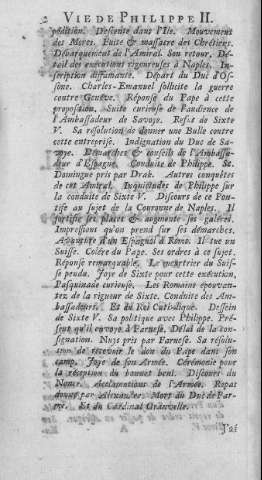 2 VIE DE PHILIPPE II.
pédition. Descente dans l'Ile. Mouvement
des Mores. Fuite & massacre des Chrétiens.
Débarquement de l'Amiral. Son retour. Dé-
tail des exécutions rigoureuses à Naples. In-
scription diffamante. Départ du Duc d'Os-
sone. Charles-Emanuel sollicite la guerre
contre Genève. Réponse du Pape à cette
proposition. Suite curieuse de l'audience de
l'Ambassadeur de Savoye. Refus de Sixte
V. Sa résolution de donner une Bulle contre
cette entreprise. Indignation du Duc de Sa-
voye. Démarches & conseils de l'Ambassa-
deur d'Espagne. Conduite de Philippe. St.
Domingue pris par Drak. Autres conquêtes
de cet Amiral. Inquiétudes de Philippe sur
la conduite de Sixte V. Discours de ce Pon-
tife au sujet de la Couronne de Naples. Il
fortifie ses places & augmente ses galères.
Impressions qu'on prend sur ses démarches.
Avanture d'un Espagnol à Rome. Il tue un
Suisse. Colère du Pape. Ses ordres à ce sujet.
Réponse remarquable. Le meurtrier du Suis-
se pendu. Joye de Sixte pour cette exécution.
Pasquinade curieuse. Les Romains épouvan-
tez de la rigueur de Sixte. Conduite des Am-
bassadeurs. Et du Roi Catholique. Dessein
de Sixte V. Sa politique avec Philippe. Pré-
sent qu'il envoye à Farnese. Délai de la con-
signation. Nuys pris par Farnese. Sa résolu-
tion de recevoir le don du Pape dans son
camp. Joye de son Armée. Cérémonie pour
la réception du bonnet beni. Discours du
Nonce. Acclamations de l'Armée. Repas
donné par Alexandre. Mort du Duc de Par-
me. Et du Cardinal Granvelle.